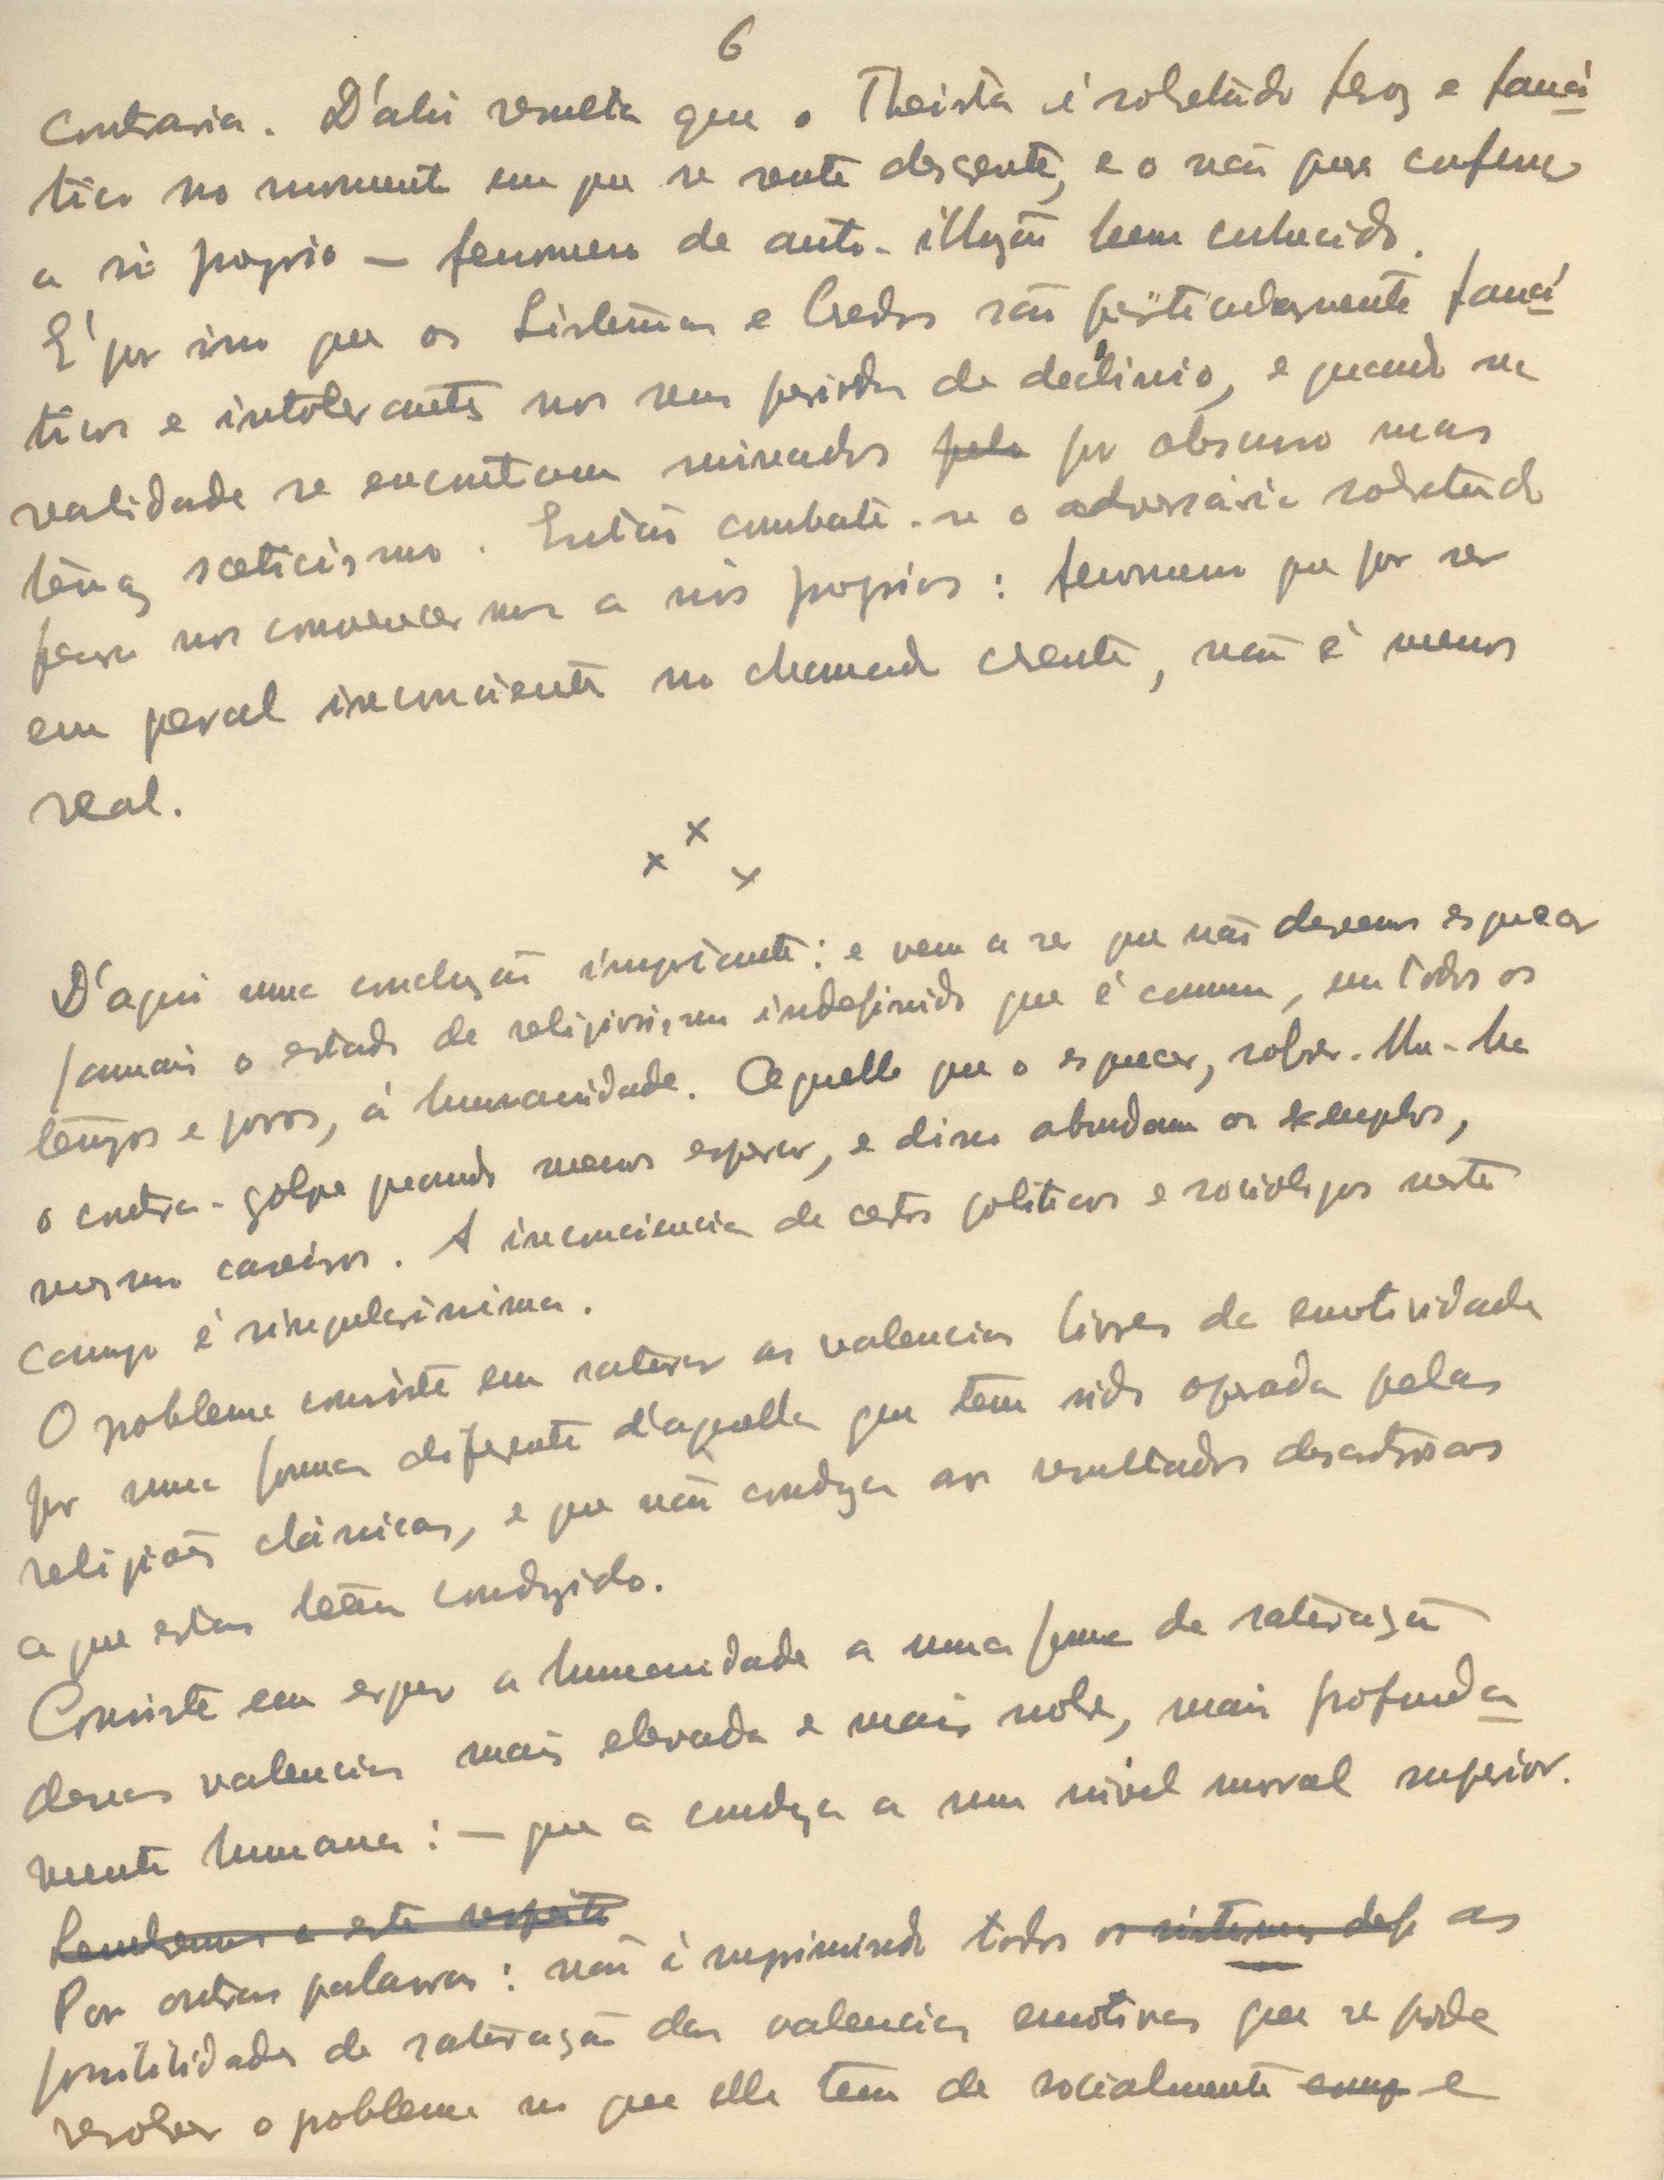 6
contraria. D'ahi resulta que o Theista é sobretudo feroz e faná
tico no momento em que se sente descrente, e o não quer confessar
a si proprio — fenomeno de auto-illuzão bem conhecido.
É por isso que os Sistemas e Credos são particularmente faná
ticos e intolerantes nos seus periodos de declinio, e quando na
realidade se encontram minados pelo por obscuro mas
tenaz scéticismo. Então combate-se o adversário sobretudo
para nos convencermos a nós proprios: fenomeno que por ser
em geral inconciente no chamado crente, não é menos
real.
x x x
D'aqui uma concluzão importante: e vem a ser que não devemos esquecer
jamais o estado de religiosismo indefinido que é comum, em todos os
tempos e povos, á humanidade. Aquelle que o esquecer, sofrer-lhe-ha
o contra-golpe quando menos esperar, e disso abundam os exemplos,
mesmo caseiros. A inconciencia de certos politicos e sociologos neste
campo é singularissima.
O problema consiste em saturar as valencias livres da emotividade
por uma forma diferente d'aquella que tem sido operada pelas
religiões clássicas, e que não conduza aos resultados desastrosos
a que estas teem conduzido.
Consiste em erguer a humanidade a uma forma de saturação
dessas valencias mais elevada e mais nobre, mais profunda
mente humana: — que a conduza a um nivel moral superior.
Lembremos a este respeito
Por outras palavras: não é suprimindo todos os sistemas def as
possibilidades de saturação das valencias emotivas que se pode
resolver o problema no que elle tem de socialmente comp e